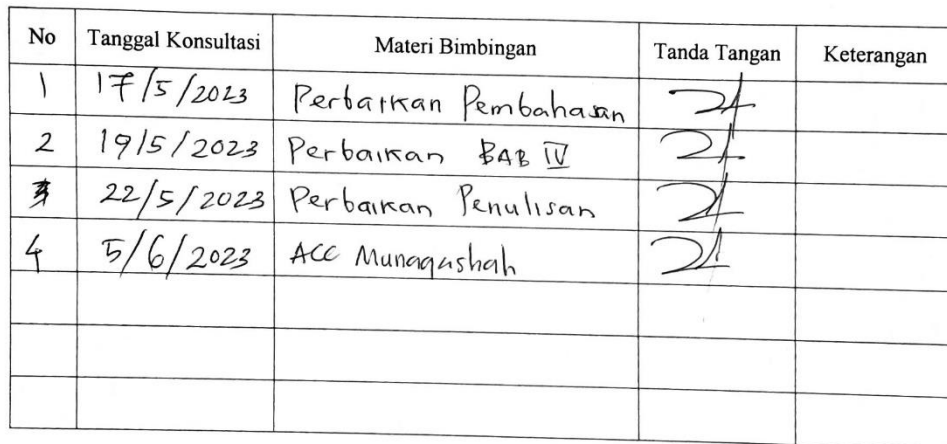 No Tanggal Konsultasi Materi Bimbingan Tanda Tangan Keterangan
1 17/5/2023 Perbaikan Pembahasan
2 19/5/2023 Perbaikan BAB IV
3 22/5/2023 Perbaikan Penulisan
4 5/6/2023 ACC Munaqashah